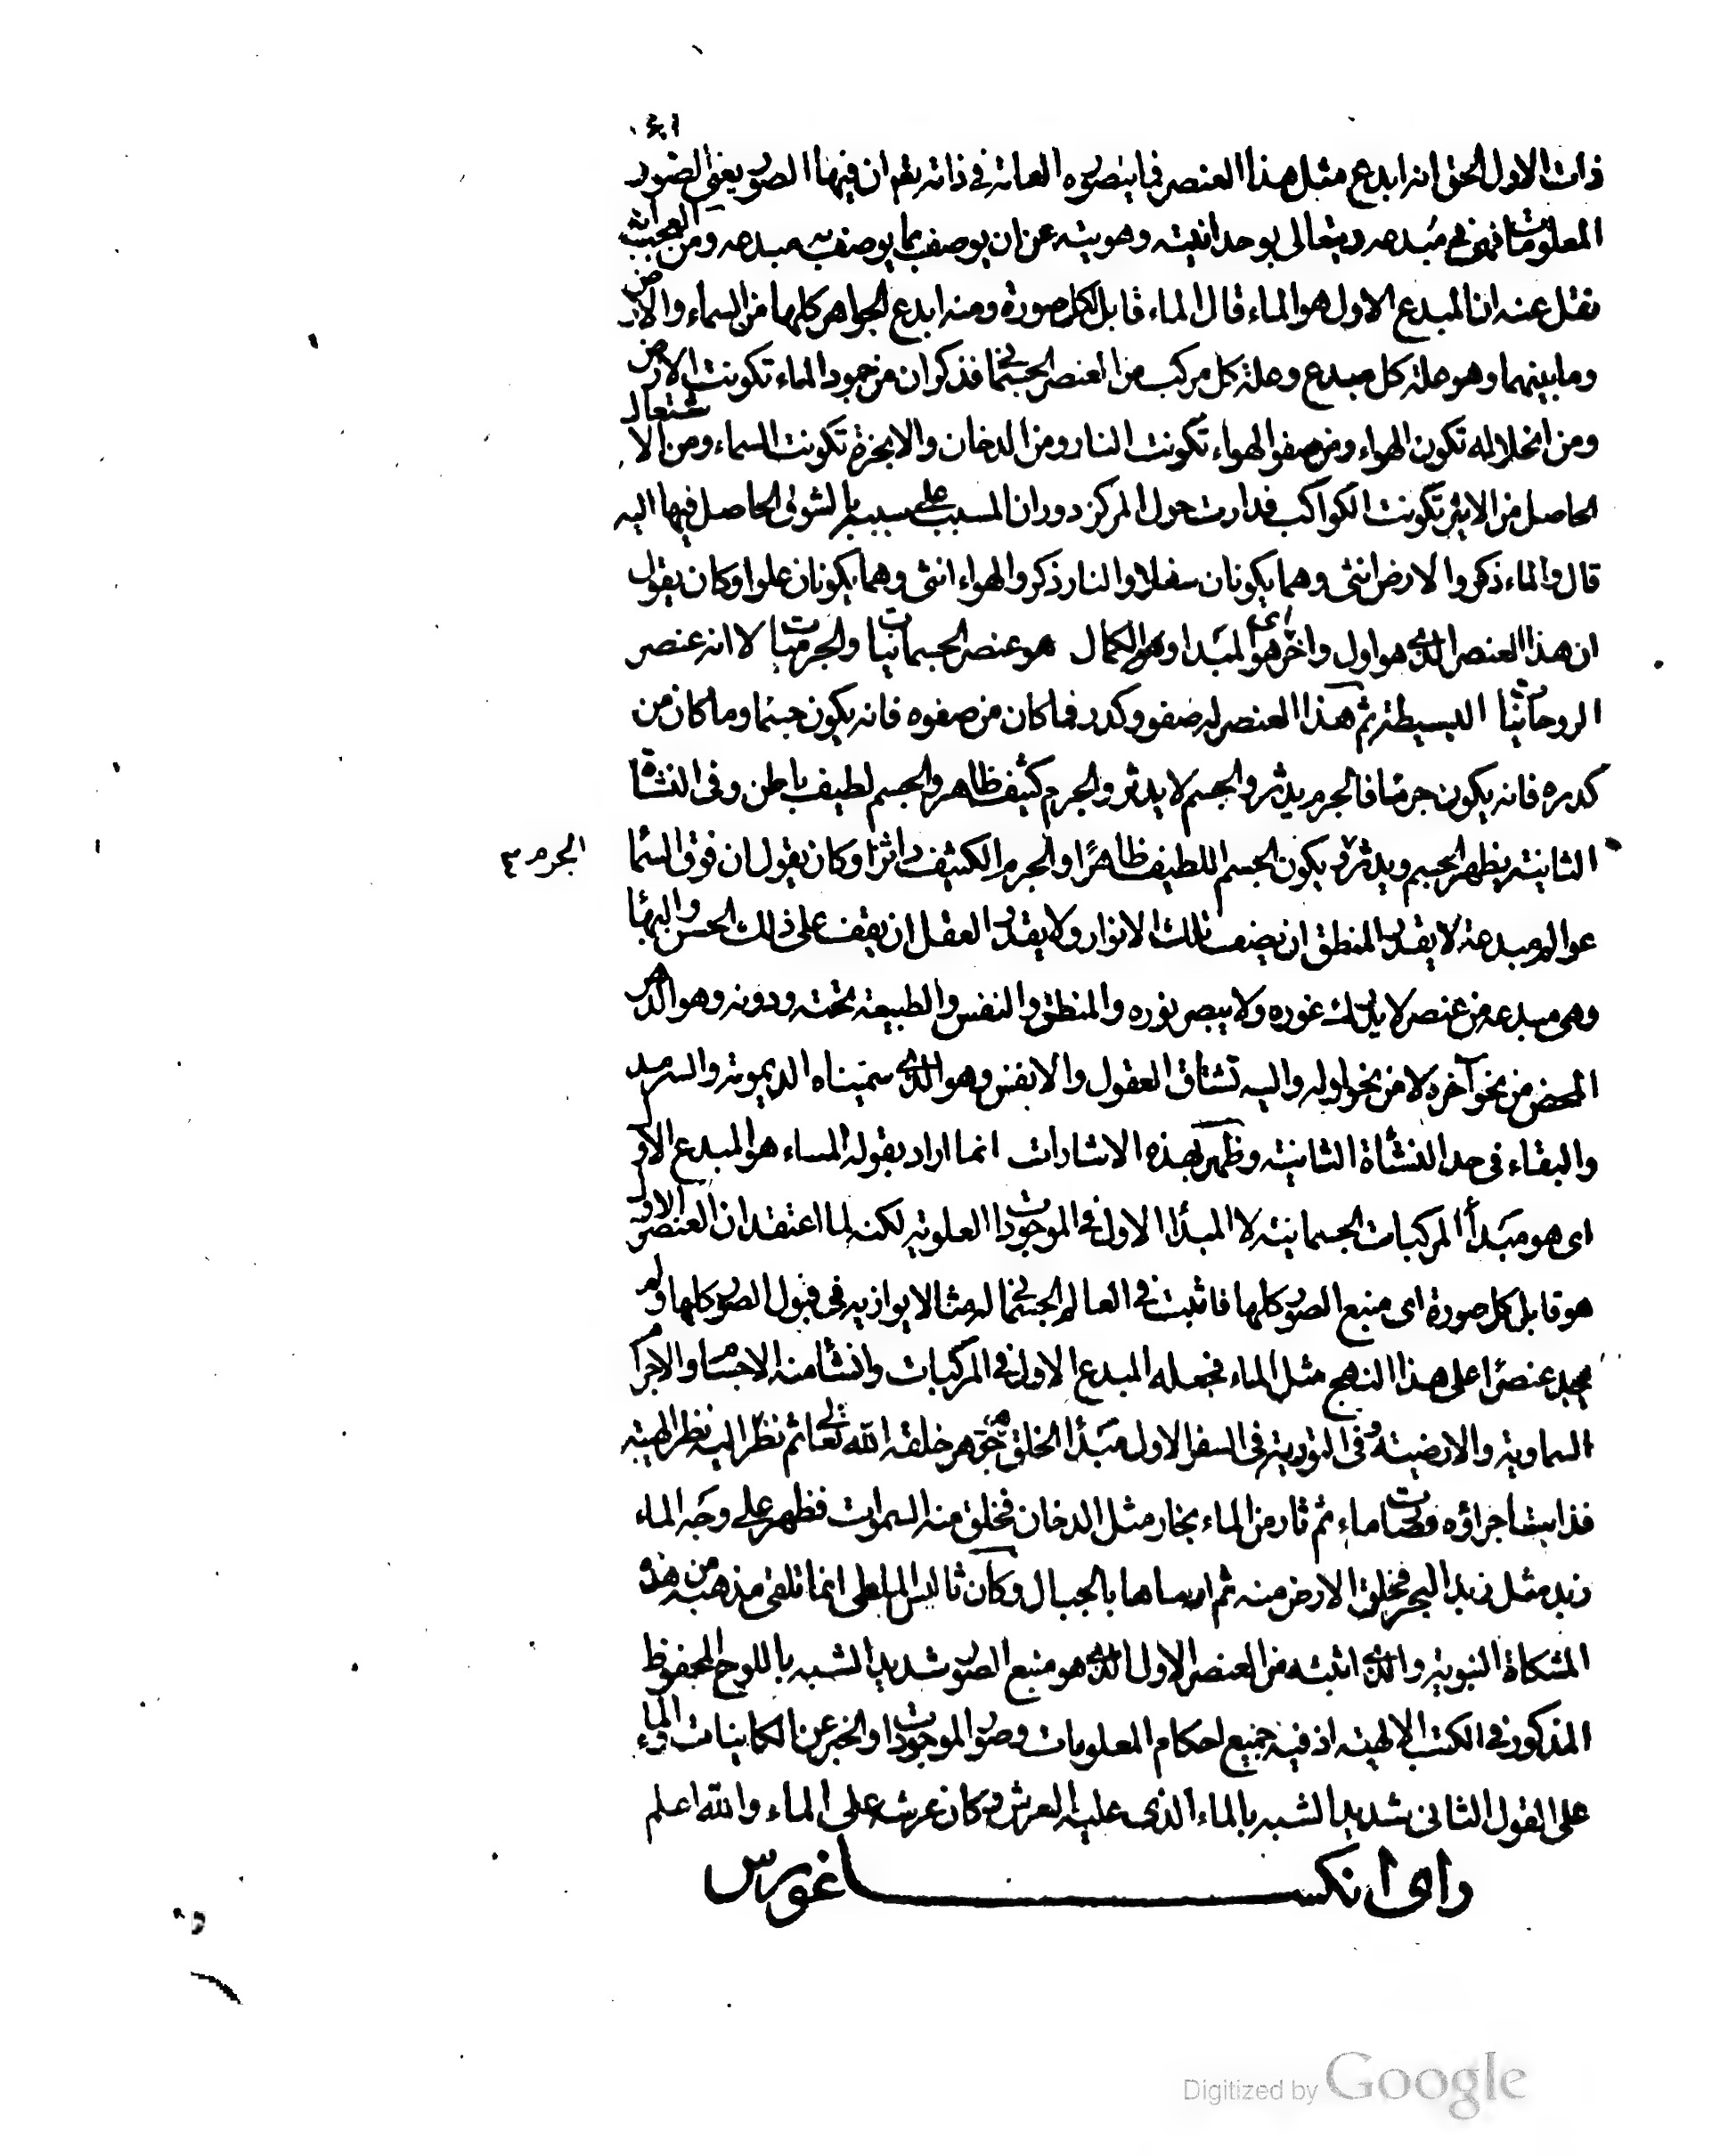 ذات الاول الحق انه ابدع مثل هذا العنصر فما يتصوره العامة في ذاته تعم ان فيها الصور يعنى الصور
المعلومات فهى فى مبدعه ويتعالى بوحدانيته وهويته عن ان يوصف بما يوصف به مبدعه ومن العجب انه
نقل عنه ان المبدع الاول هو الماء قال الماء قابل لكل صورة ومنه ابدع الجواهر كلها من السماء والارض
وما بينهما وهو علة كل مبدع وعلة كل مركب من العنصر الجسمانى فذكر ان من جمود الماء تكونت الارض
ومن انحلاله تكون الهواء ومن صفو الهواء تكونت النار ومن الدخان والابخرة تكونت السماء ومن الاشتعال
الحاصل من الاثير تكونت الكواكب فدارت حول المركز دوران المسبب على سببه بالشوق الحاصل فيها اليه
قال والماء ذكر والارض انثى وهما يكونان سفلا والنار ذكر والهواء انثى وهما يكونان علوا وكان يقول
ان هذا العنصر الذى هو اول واخر اى هو المبدا وهو الكمال هو عنصر الجسمانيات والجرميات لا انه عنصر
الروحانيات البسيطة ثم هذا العنصر له صفو وكدر فما كان من صفوه فانه يكون جسما وما كان من
كدره فانه يكون جرما فالجرم يدثر والجسم لا يدثر والجرم كثيف ظاهر والجسم لطيف باطن وفى النشاة
الثانية يظهر الجسم ويدثر ويكون الجسم اللطيف ظاهرا والجرم الكثيف داثرا وكان يقول ان فوق السما
الجرم
عوالم مبدعة لا يقدر المنطق ان يصف تلك الانوار ولا يقدر العقل ان يقف على ذلك الحسن والبها
وهى مبدعة من عنصر لا يدرك غوره ولا يبصر نوره والمنطق والنفس والطبيعة تحته ودونه وهو الدهر
المحض من نحو آخره لا من نحو اوله واليه تشتاق العقول والانفس وهو الذى سميناه الديمومة والسرمد
والبقاء فى حد النشأة الثانية وظهر بهذه الاشارات انما اراد بقوله الماء هو المبدع الاول
اى هو مبدأ المركبات الجسمانية لا المبدأ الاول فى الموجودات العلوية لكنه لما اعتقد ان العنصر الاول
هو قابل كل صورة اى منبع الصور كلها فاثبت فى العالم الجسمانى له مثالا يوازيه فى قبول الصور كلها ولم
يجد عنصرا على هذا النهج مثل الماء فجعله المبدع الاول فى المركبات وانشأ منه الاجسام والاجرام
السماوية والارضية وفى التورية فى السفر الاول مبدأ الخلق هو جوهر خلقه الله تعالى ثم نظر اليه نظر الهيبة
فذابت اجزاؤه وصارت ماء ثم ثار من الماء بخار مثل الدخان فخلق منه السموات فظهر على وجه الماء
زبد مثل زبد البحر فخلق الارض منه ثم ارساها بالجبال وكان ثاليس الملطى انما تلقى مذهبه من هذه
المشكاة النبوية والذى اثبته من العنصر الاول الذى هو منبع الصور شديد الشبه باللوح المحفوظ
المذكور فى الكتب الالهية اذ فيه جميع احكام المعلومات وصور الموجودات والخبر عن الكاينات والماء
على القول الثانى شديد الشبه بالماء الذى عليه العرش وكان عرشه على الماء والله اعلم
راى انكساغورس
Digitized by Google